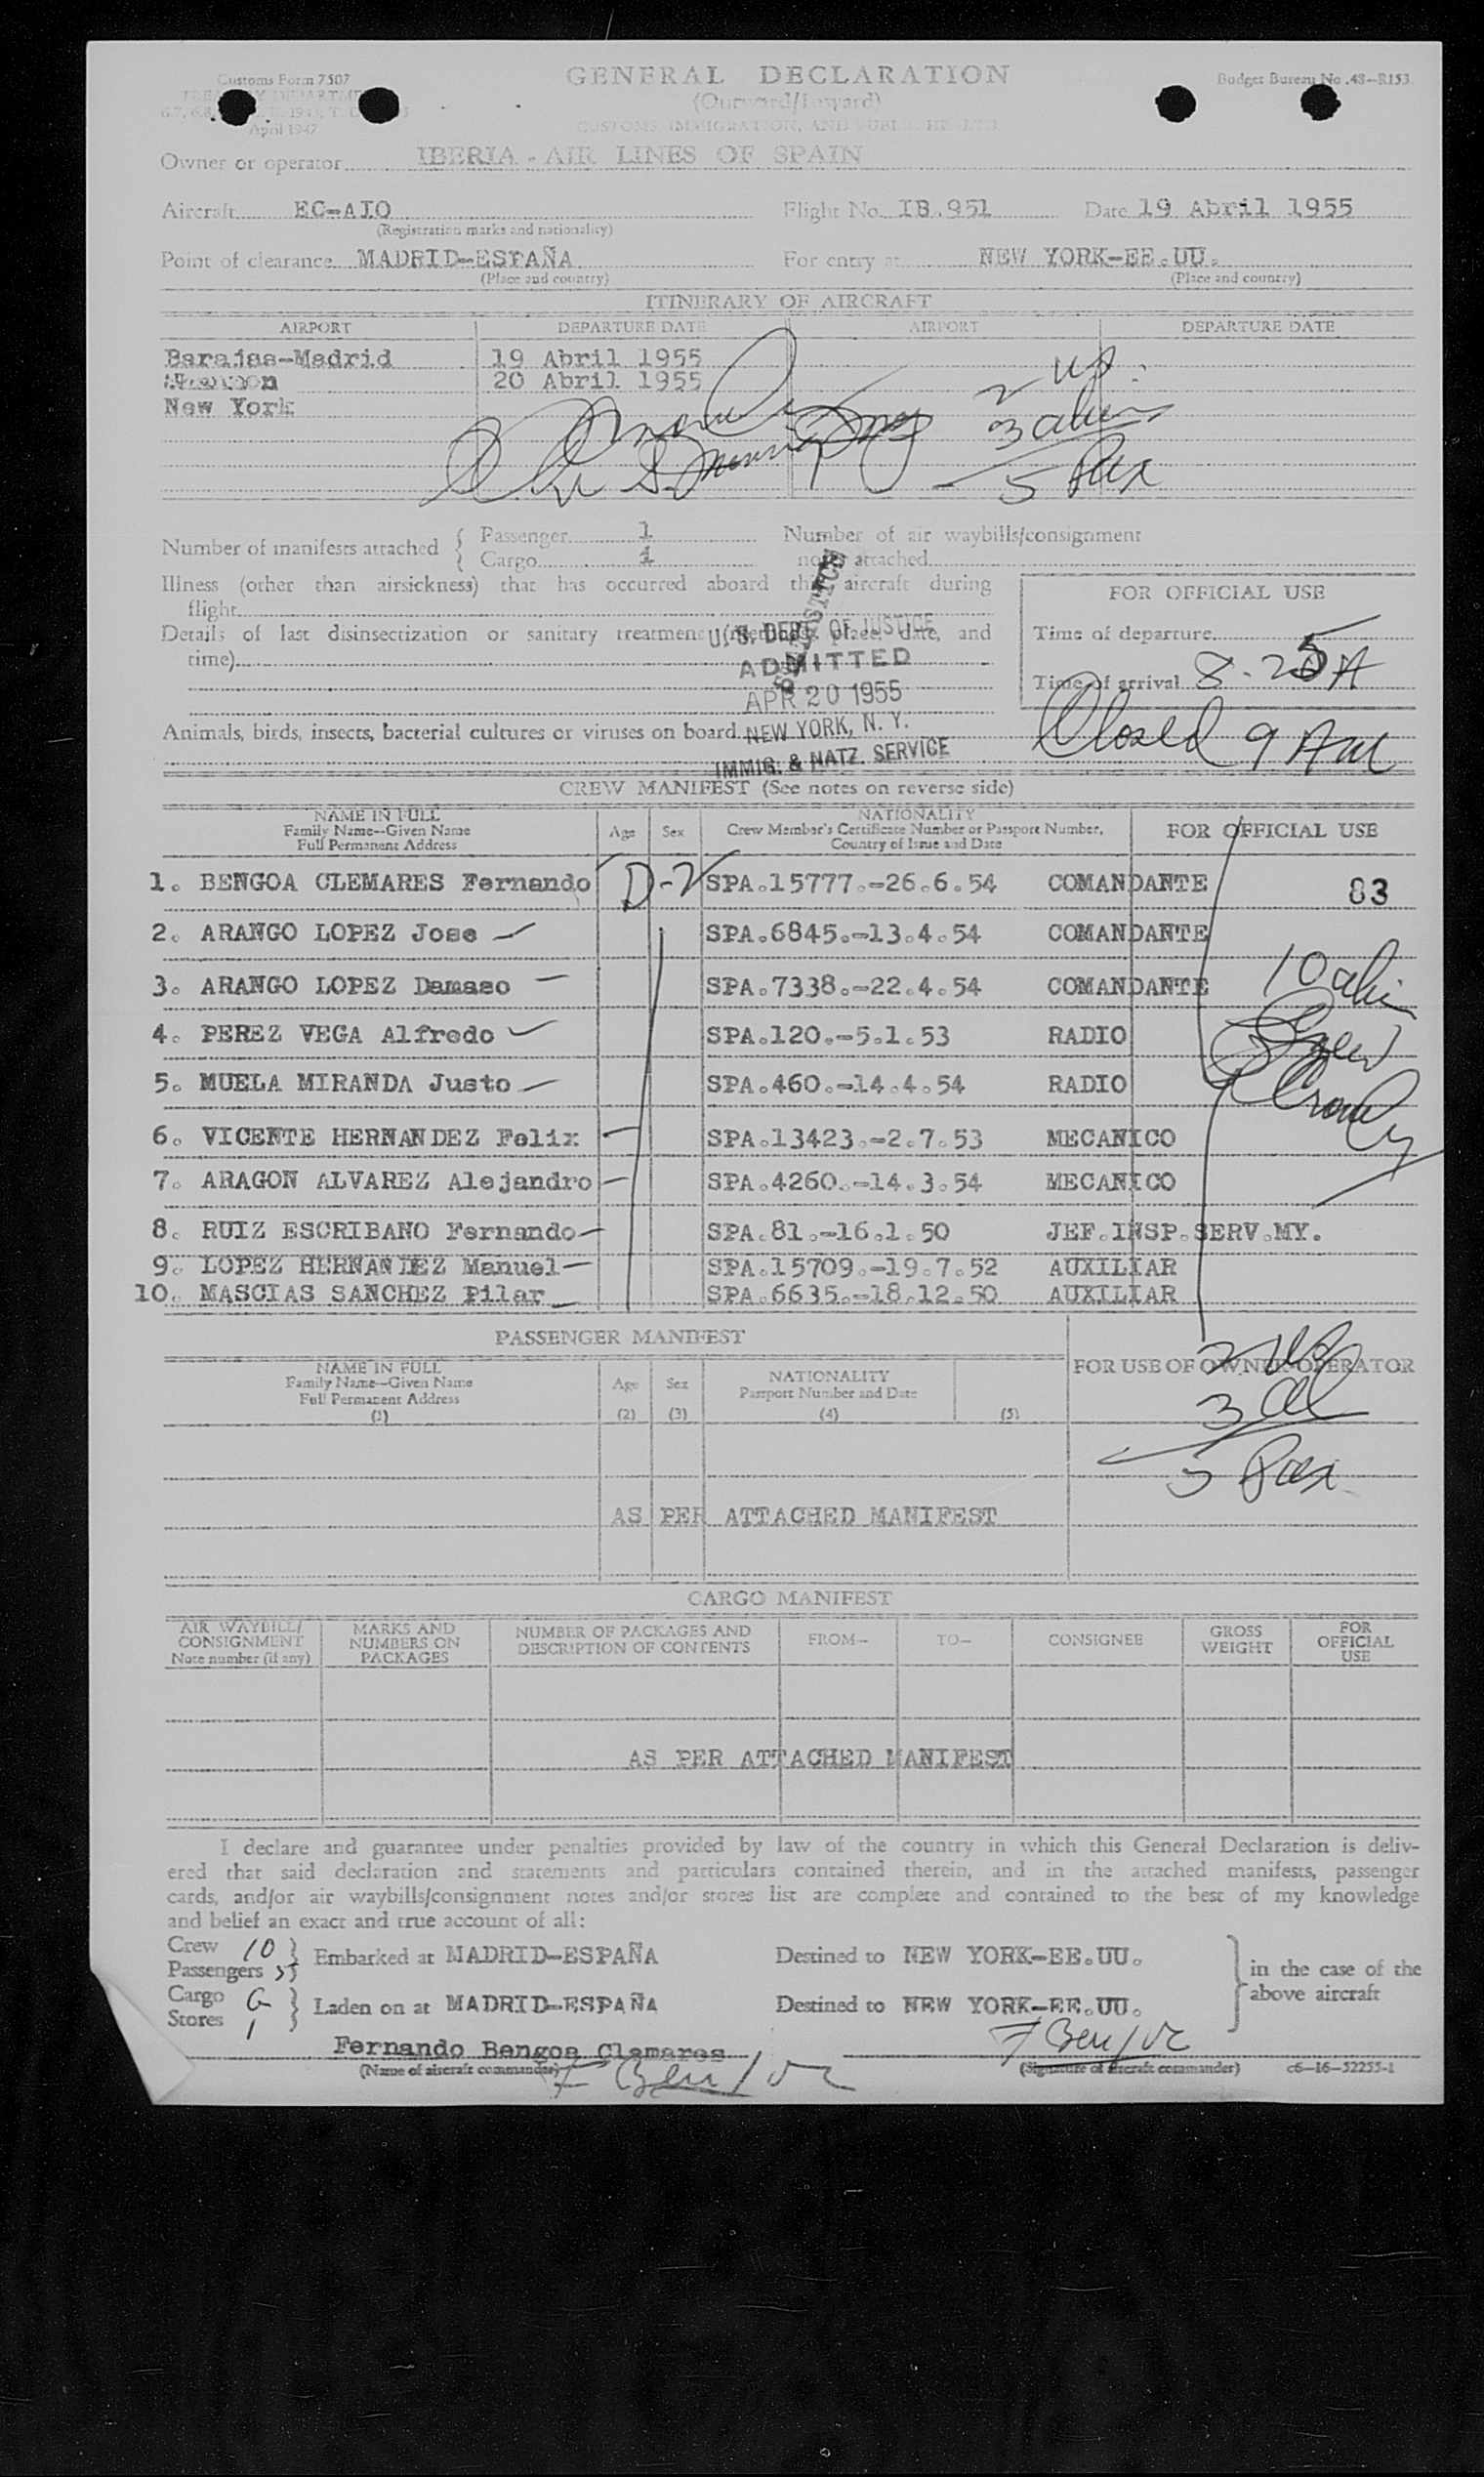 Customs Form 7507
TREASURY DEPARTMENT
April 1947
GENERAL DECLARATION
(Outward/Inward)
CUSTOMS, IMMIGRATION, AND PUBLIC HEALTH
Budget Bureau No. 48-R153.
Owner or operator IBERIA - AIR LINES OF SPAIN
Aircraft EC-AIO Flight No. IB.951 Date 19 Abril 1955
(Registration marks and nationality)
Point of clearance MADRID-ESPAÑA For entry at NEW YORK-EE.UU.
(Place and country) (Place and country)
ITINERARY OF AIRCRAFT
AIRPORT DEPARTURE DATE AIRPORT DEPARTURE DATE
Barajas-Madrid 19 Abril 1955
20 Abril 1955
New York
2 US.
3 aliens
5 Pax
Number of manifests attached { Passenger 1 Number of air waybills/consignment
Cargo 1 notes attached
Illness (other than airsickness) that has occurred aboard this aircraft during
flight
Details of last disinsectization or sanitary treatment (method, place, date, and
time)
FOR OFFICIAL USE
Time of departure
Time of arrival 8-25A
Closed 9 AM
U.S. DEPT. OF JUSTICE
ADMITTED
APR 20 1955
NEW YORK, N. Y.
IMMIG. & NATZ. SERVICE
Animals, birds, insects, bacterial cultures or viruses on board
CREW MANIFEST (See notes on reverse side)
NAME IN FULL
Family Name--Given Name
Full Permanent Address
Age Sex
NATIONALITY
Crew Member's Certificate Number or Passport Number,
Country of Issue and Date
FOR OFFICIAL USE
1. BENGOA CLEMARES Fernando D-2 SPA.15777.-26.6.54 COMANDANTE 83
2. ARANGO LOPEZ Jose SPA.6845.-13.4.54 COMANDANTE
3. ARANGO LOPEZ Damaso SPA.7338.-22.4.54 COMANDANTE
10 alien
4. PEREZ VEGA Alfredo SPA.120.-5.1.53 RADIO
Crew
5. MUELA MIRANDA Justo SPA.460.-14.4.54 RADIO
6. VICENTE HERNANDEZ Felix SPA.13423.-2.7.53 MECANICO
7. ARAGON ALVAREZ Alejandro SPA.4260.-14.3.54 MECANICO
8. RUIZ ESCRIBANO Fernando SPA.81.-16.1.50 JEF.INSP.SERV.MY.
9. LOPEZ HERNANDEZ Manuel SPA.15709.-19.7.52 AUXILIAR
10. MASCIAS SANCHEZ Pilar SPA.6635.-18.12.50 AUXILIAR
PASSENGER MANIFEST
NAME IN FULL
Family Name--Given Name
Full Permanent Address
(1)
Age
(2)
Sex
(3)
NATIONALITY
Passport Number and Date
(4)
(5)
FOR USE OF OWNER OPERATOR
2 US
3 al
5 Pax
AS PER ATTACHED MANIFEST
CARGO MANIFEST
AIR WAYBILL/
CONSIGNMENT
Note number (if any)
MARKS AND
NUMBERS ON
PACKAGES
NUMBER OF PACKAGES AND
DESCRIPTION OF CONTENTS
FROM--
TO--
CONSIGNEE
GROSS
WEIGHT
FOR
OFFICIAL
USE
AS PER ATTACHED MANIFEST
I declare and guarantee under penalties provided by law of the country in which this General Declaration is deliv-
ered that said declaration and statements and particulars contained therein, and in the attached manifests, passenger
cards, and/or air waybills/consignment notes and/or stores list are complete and contained to the best of my knowledge
and belief an exact and true account of all:
Crew 10
Passengers
} Embarked at MADRID-ESPAÑA Destined to NEW YORK-EE.UU.
Cargo
Stores
} Laden on at MADRID-ESPAÑA Destined to NEW YORK-EE.UU.
} in the case of the
above aircraft
Fernando Bengoa Clemares
(Name of aircraft commander) (Signature of aircraft commander) c6-16-52255-1